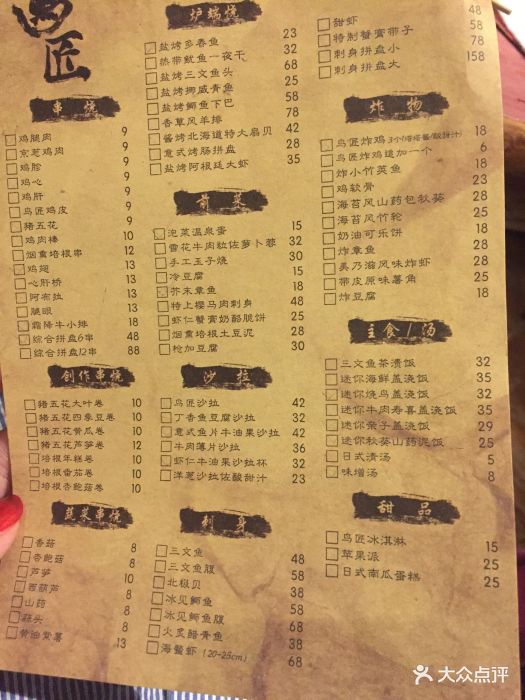 鸟匠
串烧
鸡腿肉 9
京葱鸡肉 9
鸡胗 9
鸡心 9
鸡肝 9
鸟匠鸡皮 9
猪五花 9
鸡肉棒 10
烟熏培根串 12
鸡翅 13
心肝桥 13
阿布拉 13
腿眼 13
霜降牛小排 18
综合拼盘6串 48
综合拼盘12串 88
创作串烧
猪五花大叶卷 10
猪五花四季豆卷 10
猪五花黄瓜卷 10
猪五花芦笋卷 10
培根年糕卷 10
培根番茄卷 10
培根杏鲍菇卷 10
蔬菜串烧
香菇 8
杏鲍菇 8
芦笋 10
西葫芦 8
山药 8
蒜头 8
黄油紫薯 13
炉端烧
盐烤多春鱼 23
热带鱿鱼一夜干 32
盐烤三文鱼头 32
盐烤挪威青鱼 58
盐烤鰤鱼下巴 58
香草风羊排 78
酱烤北海道特大扇贝 42
意式烤肠拼盘 28
盐烤阿根廷大虾 35
前菜
泡菜温泉蛋 15
雪花牛肉粒佐萝卜蓉 32
手工玉子烧 30
冷豆腐 15
芥末章鱼 18
特上樱马肉刺身 48
虾仁蟹膏奶酪脆饼 25
烟熏培根土豆泥 28
枪加豆腐 30
沙拉
鸟匠沙拉 42
丁香鱼豆腐沙拉 32
意式鱼片牛油果沙拉 42
牛肉薄片沙拉 36
虾仁牛油果沙拉杯 32
洋葱沙拉佐酸甜汁 23
刺身
三文鱼 48
三文鱼腹 58
北极贝 38
冰见鰤鱼 58
冰见鰤鱼腹 68
火炙醋青鱼 38
海鳌虾(20-25cm) 68
甜虾 48
特制蟹膏带子 58
刺身拼盘小 78
刺身拼盘大 158
炸物
鸟匠炸鸡3个(塔塔酱/酸甜汁) 18
鸟匠炸鸡追加一个 6
炸小竹荚鱼 18
鸡软骨 23
海苔风山药包秋葵 28
海苔风竹轮 25
奶油可乐饼 18
炸章鱼 28
美乃滋风味炸虾 28
带皮原味薯角 25
炸豆腐 18
主食/汤
三文鱼茶渍饭 32
迷你海鲜盖浇饭 35
迷你烧鸟盖浇饭 32
迷你牛肉寿喜盖浇饭 35
迷你亲子盖浇饭 29
迷你秋葵山药泥饭 25
日式清汤 5
味增汤 8
甜品
鸟匠冰淇淋 15
苹果派 25
日式南瓜蛋糕 25
大众点评